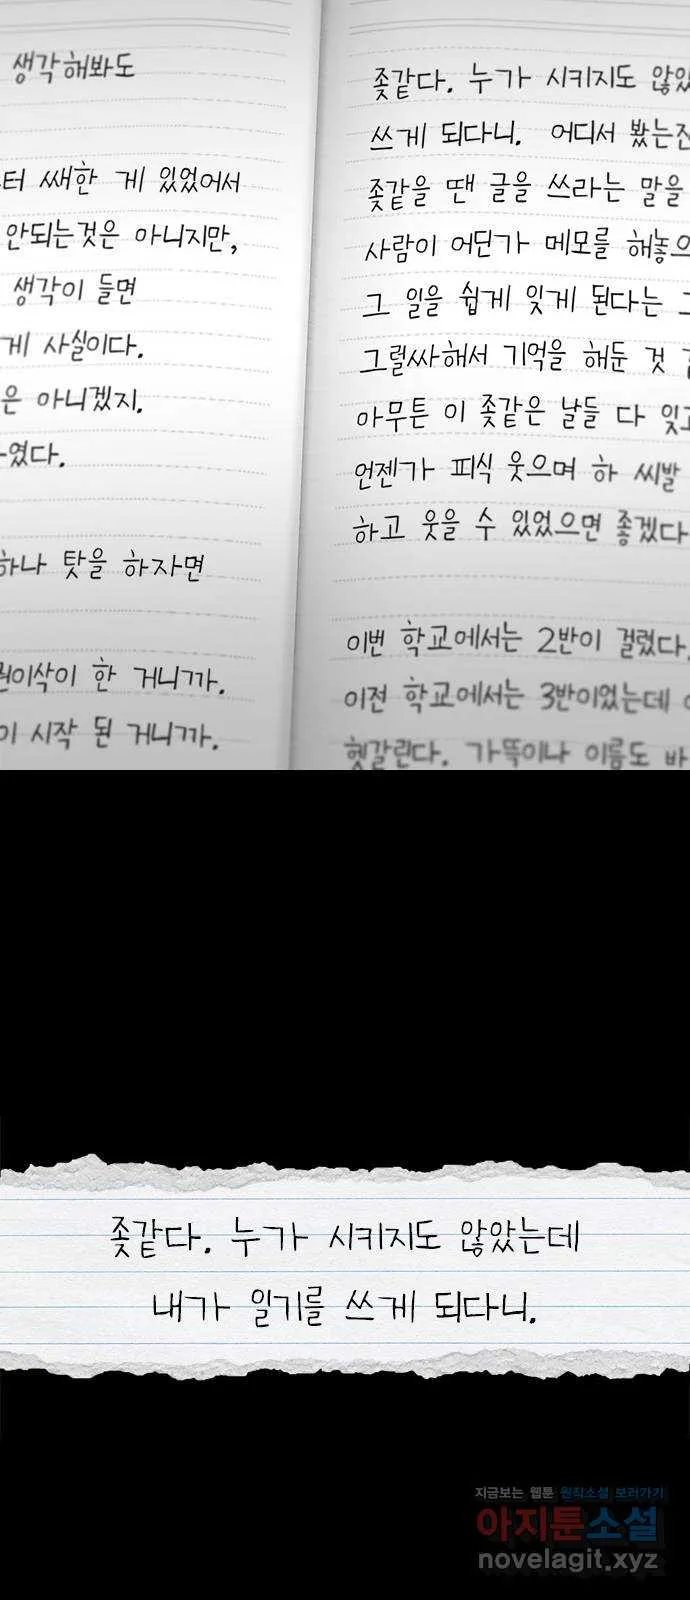 생각해봐도
터 쌔한 게 있었어서
안되는것은 아니지만,
생각이 들면
게 사실이다.
은 아니겠지.
였다.
하나 탓을 하자면
이삭이 한 거니까.
이 시작 된 거니까.
좆같다. 누가 시키지도 않았
쓰게 되다니. 어디서 봤는진
좆같을 땐 글을 쓰라는 말을
사람이 어딘가 메모를 해놓으
그 일을 쉽게 잊게 된다는 그
그럴싸해서 기억을 해둔 것
아무튼 이 좆같은 날들 다 잊고
언젠가 피식 웃으며 하 씨발
하고 웃을 수 있었으면 좋겠다
이번 학교에서는 2반이 걸렸다.
이전 학교에서는 3반이었는데
헷갈린다. 가뜩이나 이름도 바
좆같다. 누가 시키지도 않았는데
내가 일기를 쓰게 되다니.
지금보는 웹툰 원작소설 보러가기
아지툰소설
novelagit.xyz